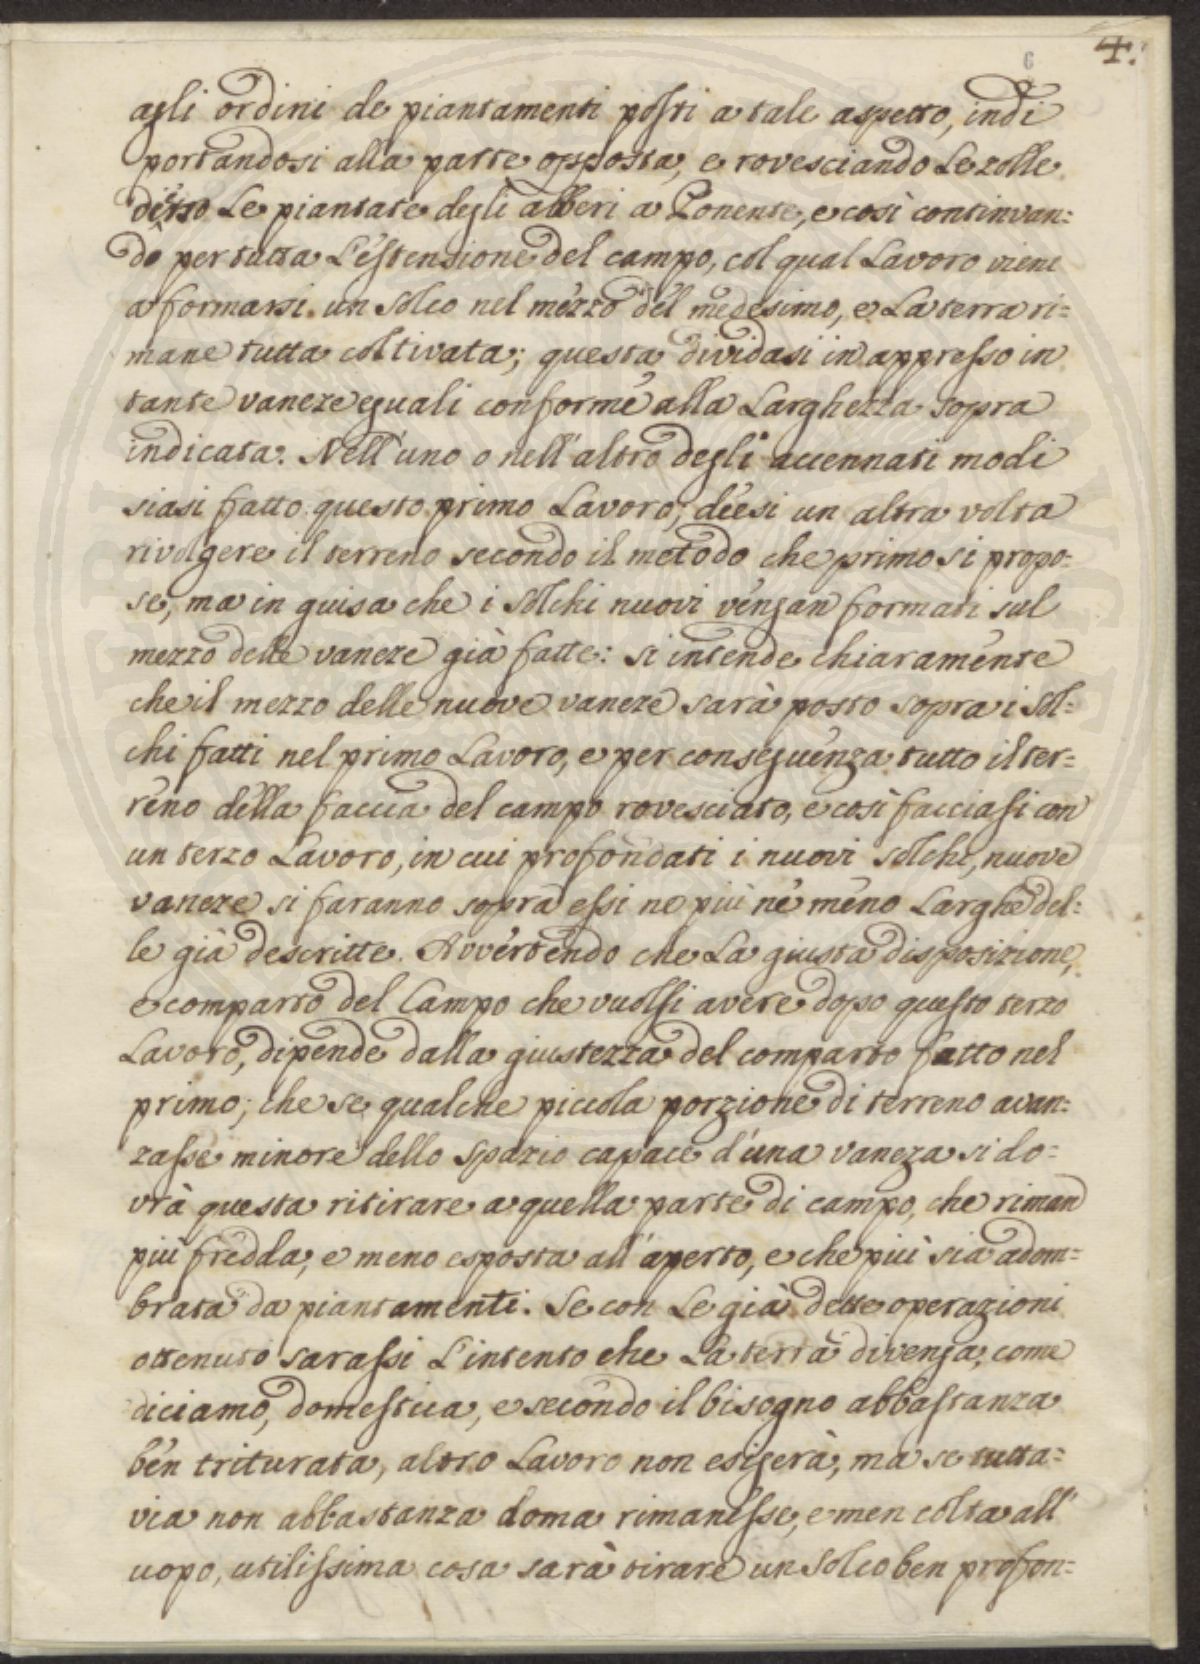 4.
6
agli ordini de piantamenti posti a tale aspetto, indi
portandosi alla parte opposta, e rovesciando le zolle
dietro le piantate degli alberi a Ponente, e così continuan=
do per tutta l'estensione del campo, col qual Lavoro viene
a formarsi un solco nel mezzo del medesimo, e la terra ri=
mane tutta coltivata; questa dividasi in appresso in
tante vaneze eguali conforme alla Larghezza sopra
indicata. Nell'uno o nell'altro degli accennati modi
siasi fatto questo primo Lavoro, déesi un altra volta
rivolgere il terreno secondo il metodo che primo si propo=
se, ma in guisa che i solchi nuovi vengan formati sul
mezzo delle vaneze già fatte: si intende chiaramente
che il mezzo delle nuove vaneze sarà posto sopra i sol=
chi fatti nel primo Lavoro, e per conseguenza tutto il ter=
reno della faccia del campo rovesciato, e così facciasi con
un terzo Lavoro, in cui profondati i nuovi solchi, nuove
vaneze si faranno sopra essi ne più nè meno Larghe del=
le già descritte. Avvertendo che La giusta disposizione,
e comparto del Campo che vuolsi avere dopo questo terzo
Lavoro, dipende dalla giustezza del comparto fatto nel
primo; che se qualche piccola porzione di terreno avan=
zasse minore dello spazio capace d'una vaneza si do=
vrà questa ritirare a quella parte di campo, che riman
più fredda, e meno esposta all'aperto, e che più sia adom=
brata da piantamenti. Se con Le già dette operazioni
ottenuto sarassi L'intento che La terra divenga, come
diciamo, domestica, e secondo il bisogno abbastanza
ben triturata, altro Lavoro non esigerà, ma se tutta=
via non abbastanza doma rimanesse, e men colta all'
uopo, utilissima cosa sarà tirare un solco ben profon=